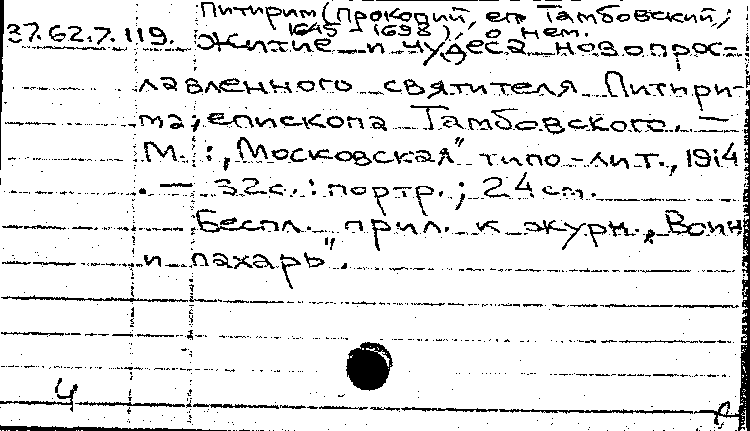 Питирим (Прокопий, еп Тамбовский;
1645 - 1698), о нем.
37.62.7.119. Житие и чудеса новопрос-
лавленного святителя Питири-
ма, епископа Тамбовского. —
М. : „Московская" типо-лит., 1914
. — 32с. : портр. ; 24 см.
Беспл. прил. к журн. „Воин
и пахарь".
4